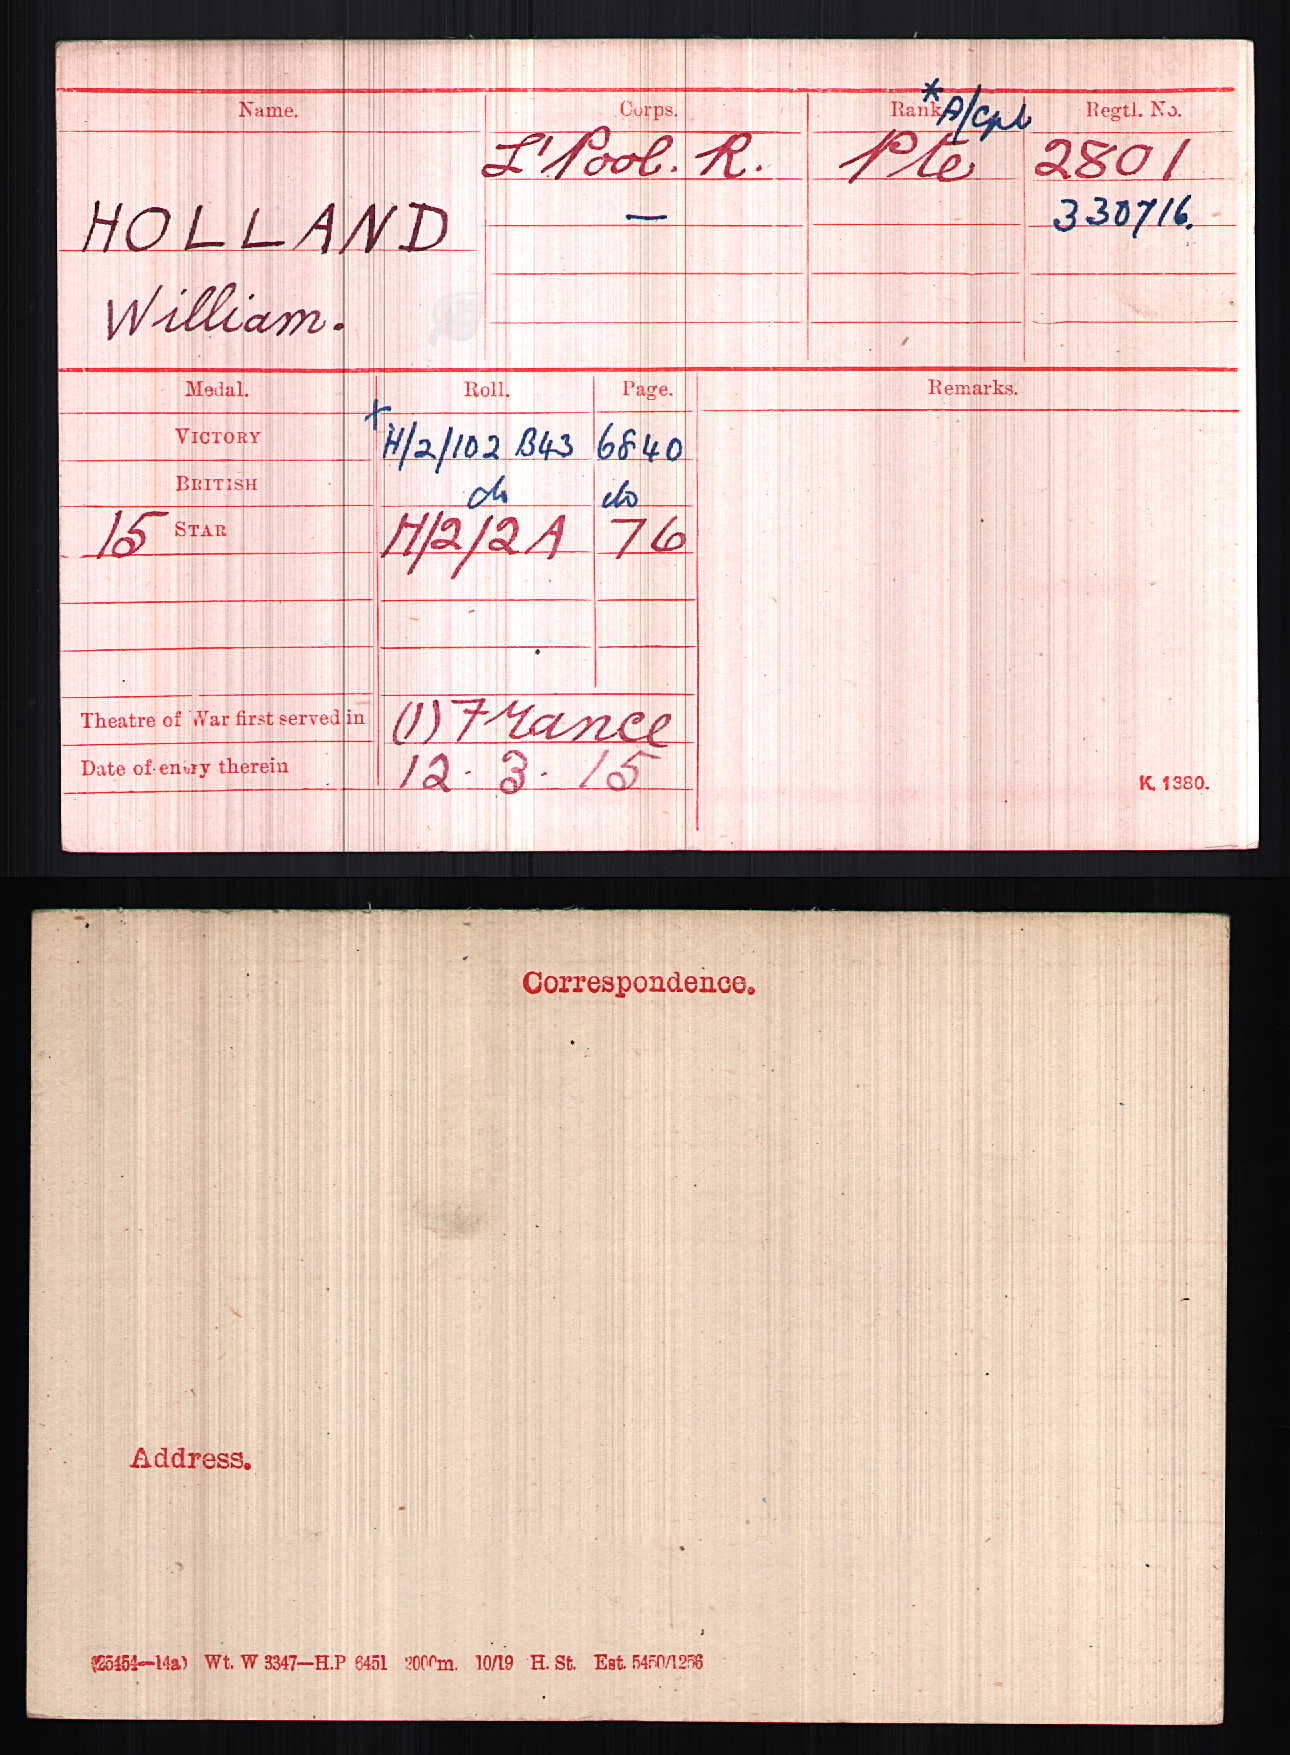 Name. Corps. Rank * A/Cpl Regtl. No.
L'Pool. R. Pte 2801
HOLLAND — 330716.
William.
Medal. Roll. Page. Remarks.
VICTORY + H/2/102 B43 6840
BRITISH do do
15 STAR H/2/2A 76
Theatre of War first served in (1) France
Date of entry therein 12.3.15
K. 1380.
Correspondence.
Address.
(25454—14a) Wt. W 3347—H.P 6451 2000m. 10/19 H. St. Est. 5450/1256